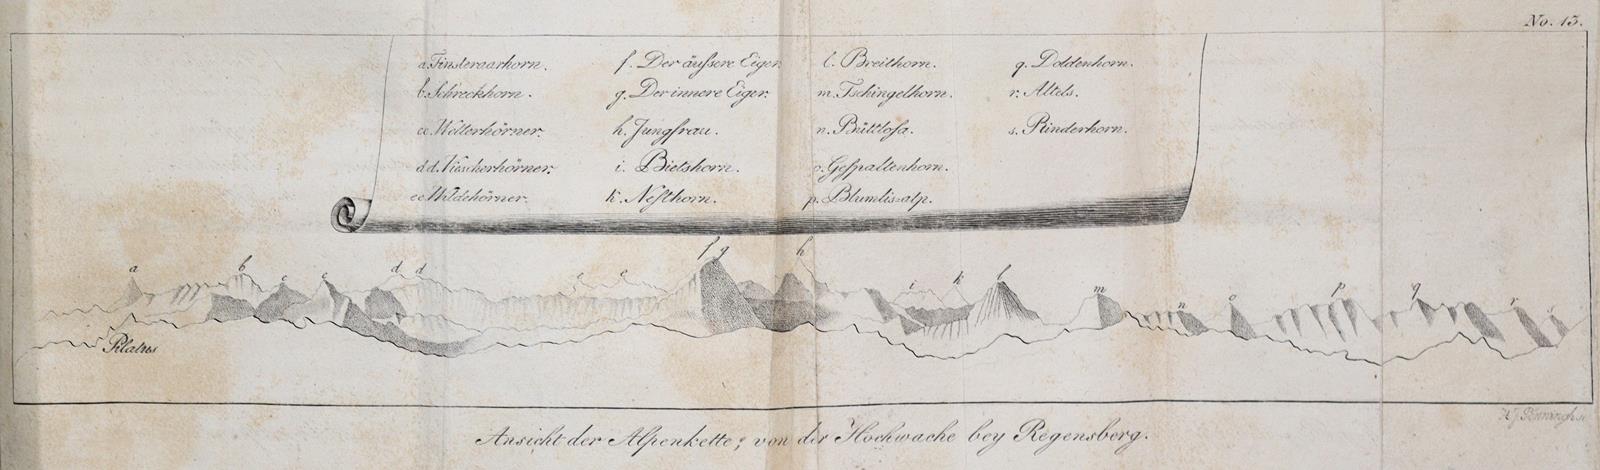 No. 13.
a. Finsteraarhorn.
b. Schreckhorn.
cc. Wetterhörner.
dd. Viescherhörner.
ee. Wildehörner.
f. Der äußere Eiger.
g. Der innere Eiger.
h. Jungfrau.
i. Bietshorn.
k. Nesthorn.
l. Breithorn.
m. Tschingelhorn.
n. Büttlosa.
o. Gespaltenhorn.
p. Blumlisalp.
q. Doldenhorn.
r. Altels.
s. Rinderhorn.
a b c c d d e e f g h i k l m n o p q r s
Pilatus
Ansicht der Alpenkette; von der Hochwache bey Regensberg.